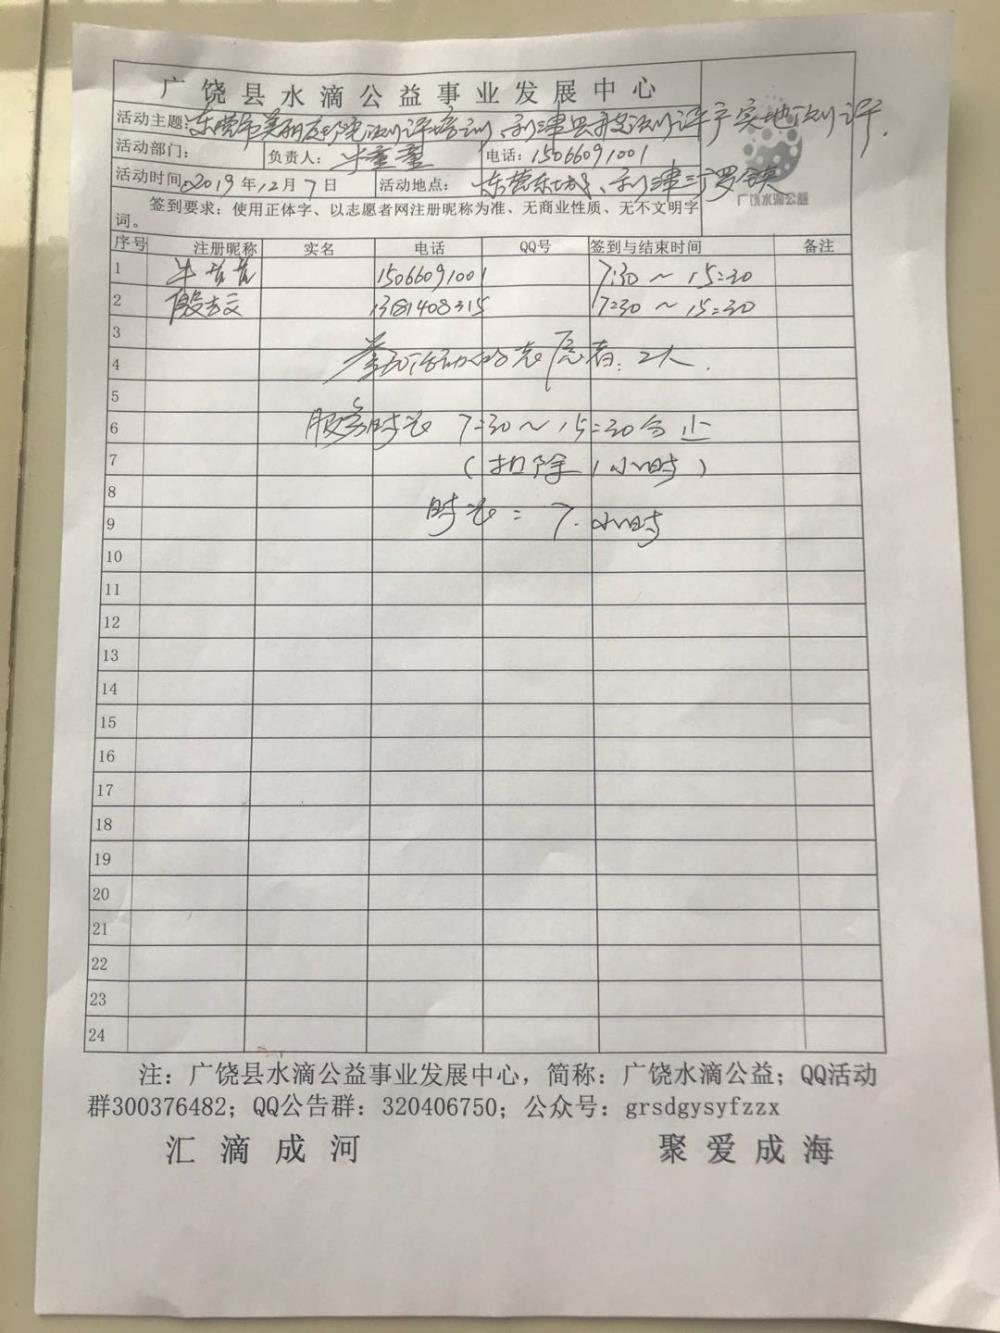 广饶县水滴公益事业发展中心
活动主题:东营市美丽庭院测评培训、利津县 测评户实地测评.
活动部门: 负责人: 牛 电话: 15066091001
活动时间:2019年12月7日 活动地点: 东营东城、利津
广饶水滴公益
签到要求：使用正体字、以志愿者网注册昵称为准、无商业性质、无不文明字
词。
序号 注册昵称 实名 电话 QQ号 签到与结束时间 备注
1 牛 15066091001 7:30～15:30
2 殷 7:30～15:30
3
4 参加活动的志愿者: 2人.
5
6 服务时长 7:30～15:30分止
7 (扣除1小时)
8
9 时长: 7.小时
10
11
12
13
14
15
16
17
18
19
20
21
22
23
24
注：广饶县水滴公益事业发展中心，简称：广饶水滴公益；QQ活动
群300376482；QQ公告群：320406750；公众号：grsdgysyfzzx
汇滴成河 聚爱成海